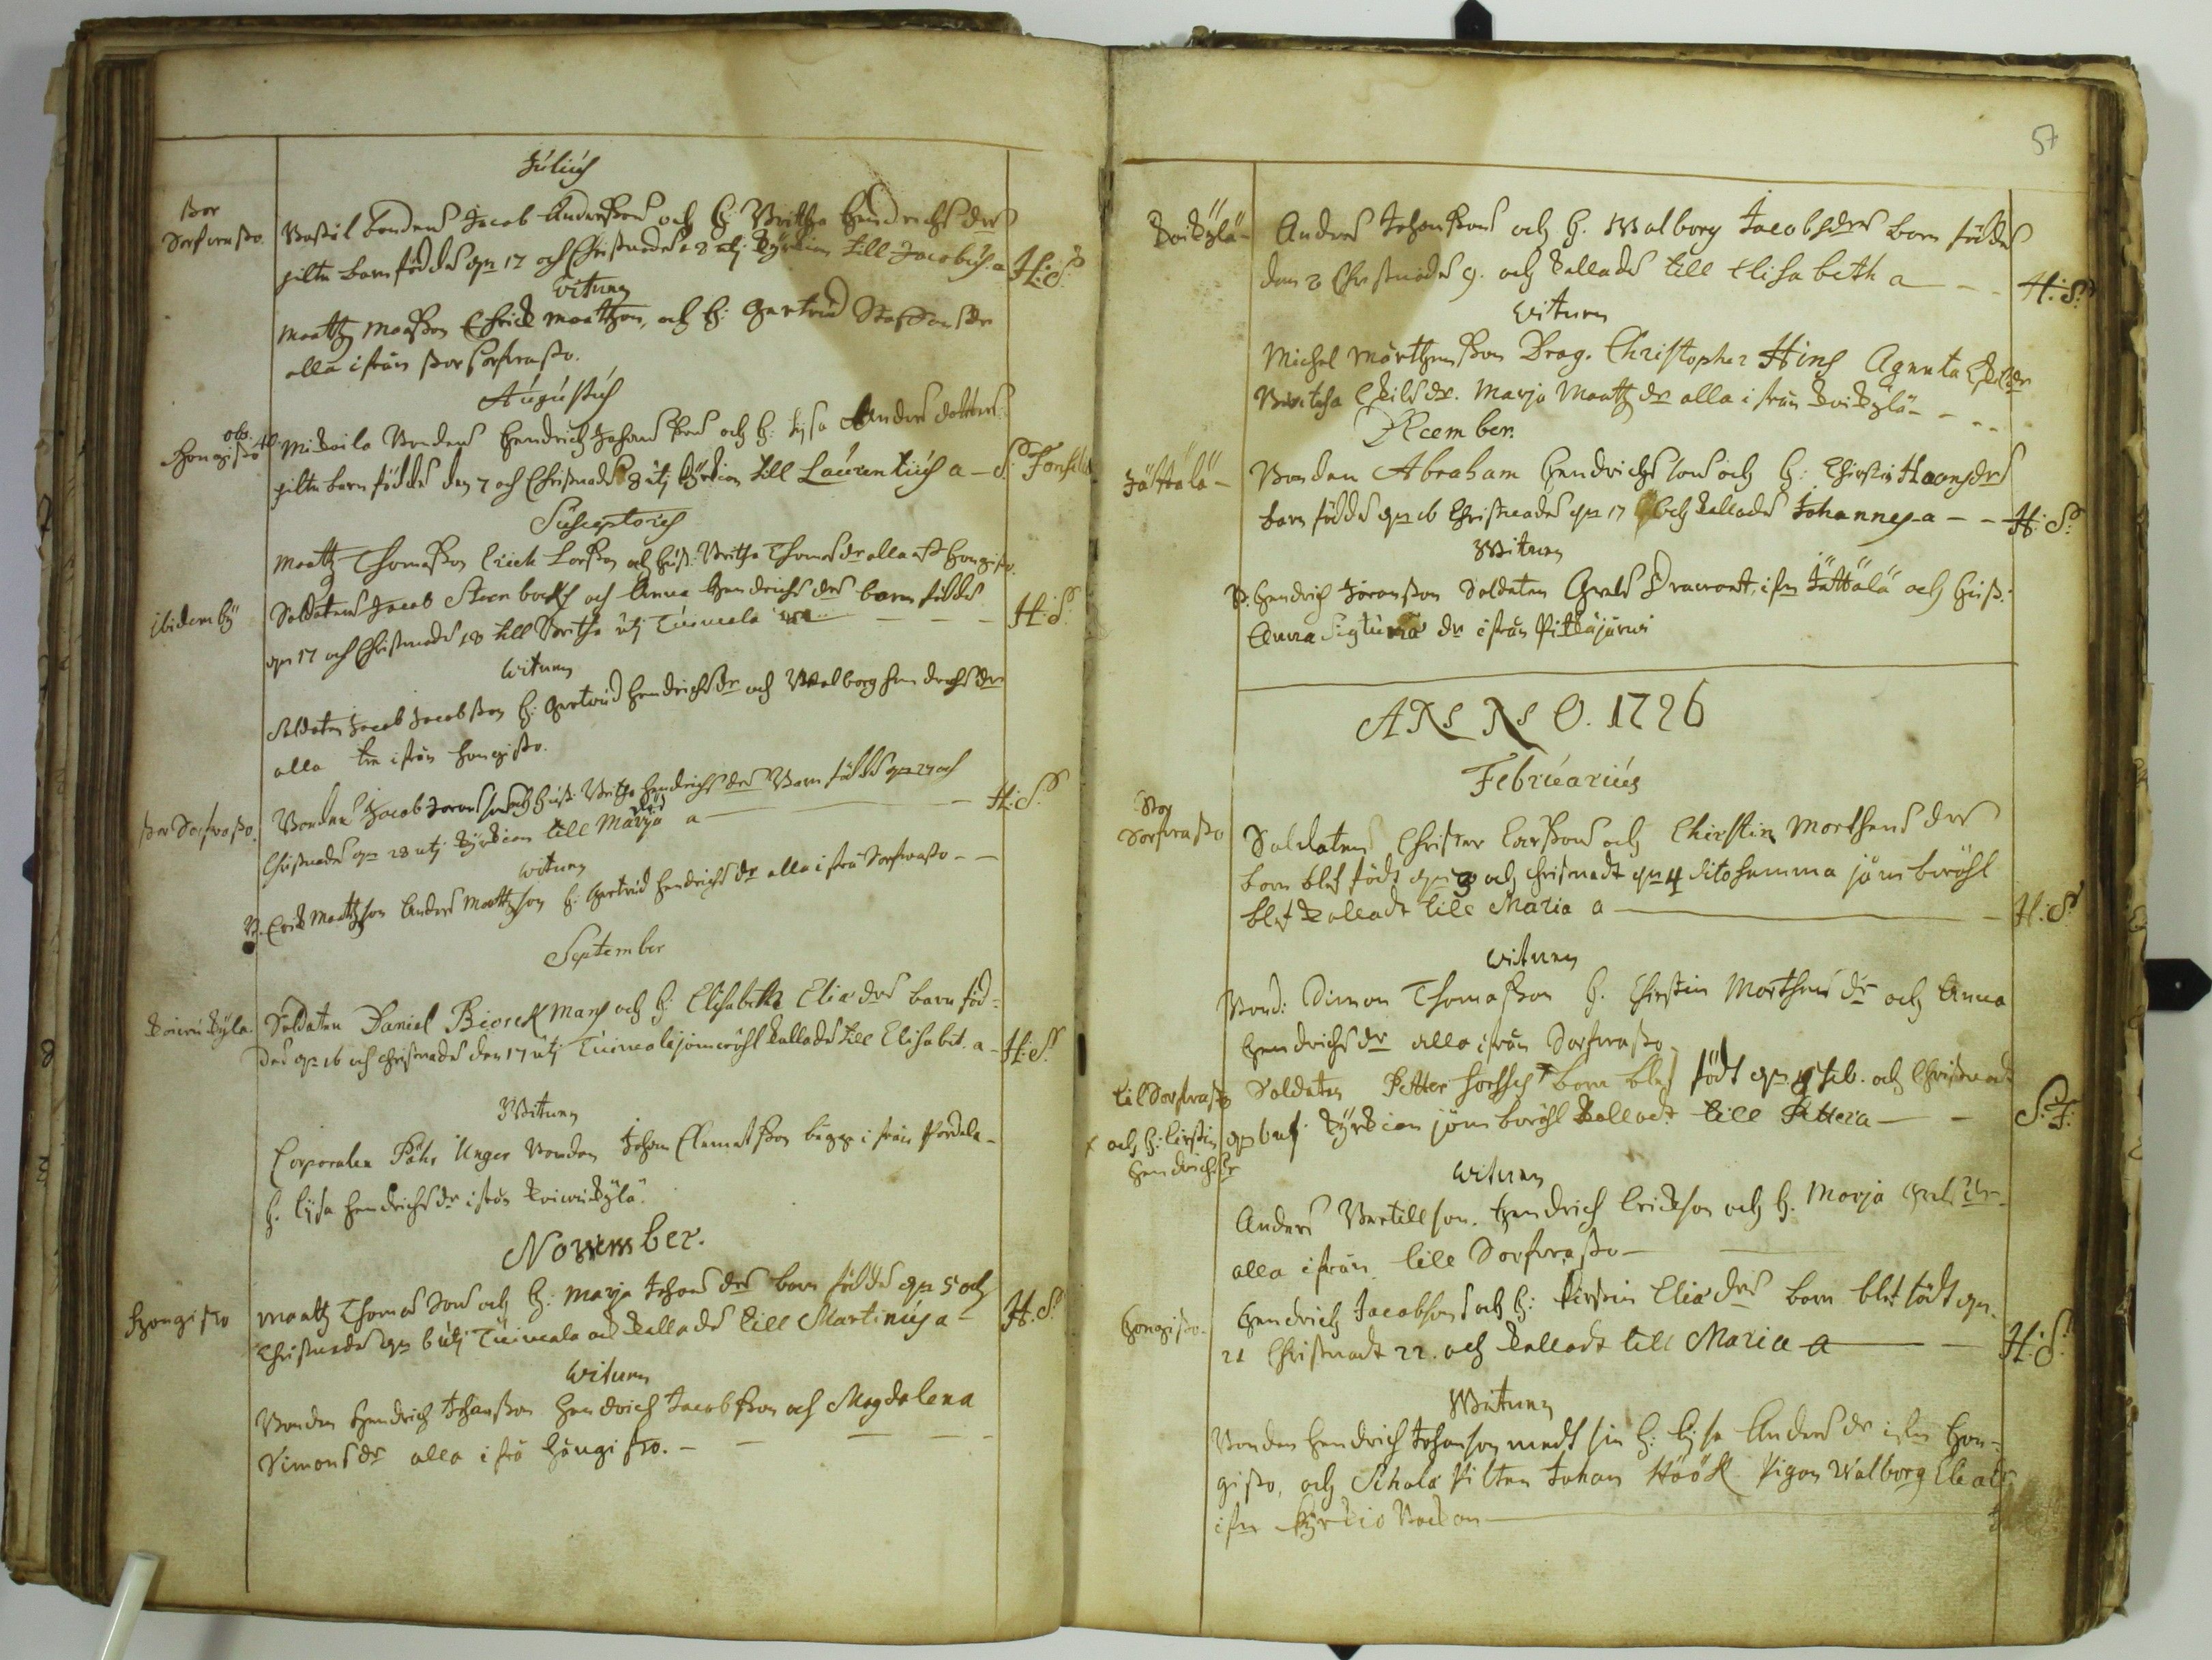 Julius
Stor
Sorfwasto
Bonden Jacob Andersson och h: Britha Hendrichs drs
piltu barn föddes den 17 och Christnades 18 uti Kyrckian till Jacobus. a H: S:
Witnen
Maattz Maasson Chrick Maattzon, och h: Gertrud Staffans dr
alla ifrån Stor Sorfwasto.
Augustus
ob.
Hongisto
Mickaila Bondens Hendrich Johanssons och h: Lijsa Anders dotters
piltu barn föddes den 7 och Christnades 8 uti Kyrckian till Laurentius a S:
Susceptores
Maattz Thomasson Erich Larsson och hust: Britha Thomas dr alla af Hongisto.
ibidem by
Soldatens Jacob Steenbocks och Anna Hendrichs drs barn föddes
den 17 och Christnades 18 till Britha uti Tuimala H: S:
Witnen
Soldaten Jacob Jacobsson h: Gertrud Hendrichs dr och Walborg Hendrichs dr
alla tre ifrån Hongisto.
Stor Sorfwasto.
Bonden Jacob Jorans sons och hust: Britha Hendrichs drs Barn föddes den 27 och
Christnades den 28 uti Kyrckian till Marja a H: S:
Witnen
B. Erick Maattzson Anders Maattzson h: Gertrud Hendrichs dr alla ifrå Sorfwasto
September
Koiwukyla
Soldaten Daniel Biorckmans och h: Elisabetha Elias drs barn föd-
des den 16 och christnades den 17 uti Tuimala kallades till Elisabet. a H: S:
Witnen
Corporalen Påhr Unger Bonden Johan Clemetsson bägge ifrån
h. Lijsa Hendrichs dr ifrån Koiwukylä.
November.
Hongisto
Maattz Thomas sons och h: Marja Johans drs barn föddes den 5 och
Christnades den 6 uti Tuimala och kallades till Martinus a H: S:
Witnen
Bonden Hendrich Johansson Hendrich Jacobsson och Magdalena
Simons dr alla ifrå Hångisto.
57
Koikylä
Anders Johanssons och h. Walborg Jacobs drs barn föddes
den 8 Christnades 9. och kallades till Elisabeth a H: S:
Witnen
Michel Mårthensson Drag. Christopher Hins Agneta
Britha Eskils dr. Marja Maattz dr alla ifrån Koikylä
December.
Jättälä
Bonden Abraham Hendrichs sons och h: Chirstin Haans drs
barn föddes den 16 Christnades den 17 och kallades Johannes a H: S:
Witnen
B. Hendrich Joransson Soldaten ifrn Jättälä och Hust:
Anna dr ifrån Pitkäjärwi
ANNO. 1726
Februarius
Stor
Sorfwasto
Soldatens Christer Larssons och Chirstin Morthens drs
barn blef födt den 3 och christnadt den 4 dito
blef kalladt till Maria a H: S:
Witnen
Bond: Simon Thomasson h. Chirstin Morthens dr och Anna
Hendrichs dr alla ifrån Sorfwasto
Lil Sorfwasto
Soldaten Petter × barn blef födt den 4 Feb. och Christnadt
× och h: Cirstin
Hendrichs dr
den 6 uti Kyrckian kalladt till Petter a S: F:
Witnen
Anders Bertillson. Hendrich Erickson och h. Marja
alla ifrån Lill Sorfwasto
Hongisto.
Hendrich Jacobsons och h: Kirstin Elias drs barn blef födt den
21 Christnadt 22. och kalladt till Maria a H: S:
Witnen
Bonden Hendrich Johanson medh sin h: Lijsa Anders dr ifrn Hon-
gisto, och Schola Pilten Johan Höök Pigan Walborg
ifrn Kyrckio Backan